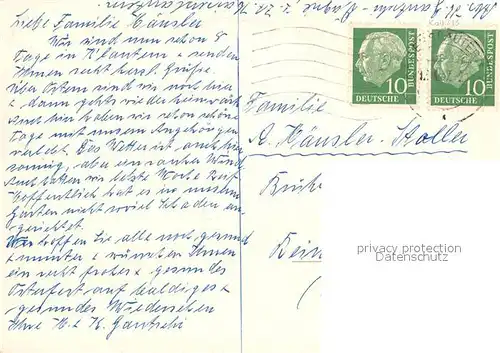 Liebe Familie Hänsler
Wir sind nun schon 8
Tage in & senden
Ihnen recht herzl. Grüsse.
Über Ostern sind wir noch hier
& dann gehts wieder heimwärts
Auch hier haben wir schon schöne
Tage mit unsern Angehörigen
verlebt. Das Wetter ist auch hier
sonnig, aber ein rauher Wind
Auch hatten wir letzte Woche Reif
Hoffentlich hat es in unserm
Garten nicht soviel Schaden an-
gerichtet.
Wir hoffen Sie alle noch gesund
& munter & wünschen Ihnen
ein recht frohes & gesundes
Osterfest auf baldiges &
gesundes Wiedersehen
Ihre H. & K. Gautschi
Familie
A. Hänsler-Stoller
10
BUNDESPOST
DEUTSCHE
10
BUNDESPOST
DEUTSCHE
privacy protection
Datenschutz